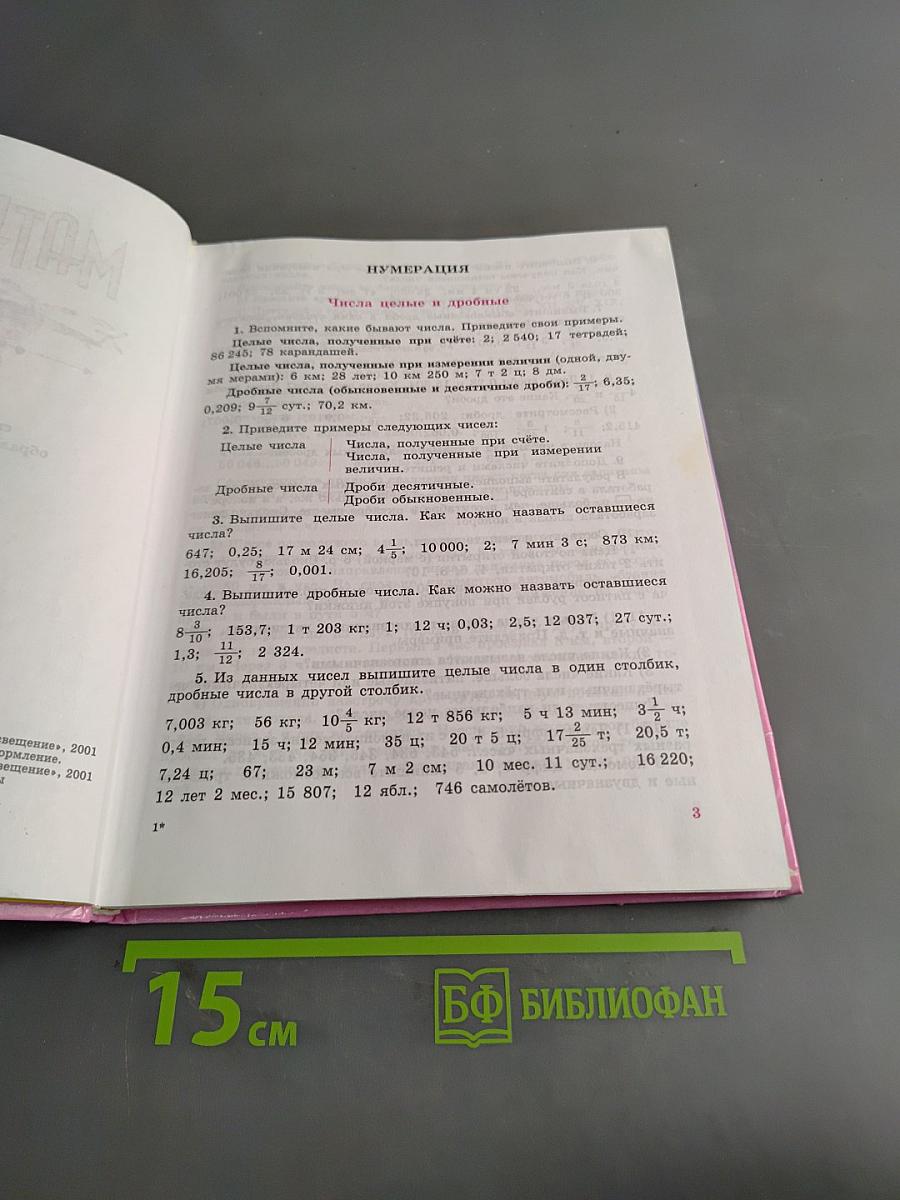 МАТ
обра
свещение», 2001
ормление.
вещение», 2001
ы
НУМЕРАЦИЯ
Числа целые и дробные
1. Вспомните, какие бывают числа. Приведите свои примеры.
Целые числа, полученные при счёте: 2; 2 540; 17 тетрадей;
86 245; 78 карандашей.
Целые числа, полученные при измерении величин (одной, дву-
мя мерами): 6 км; 28 лет; 10 км 250 м; 7 т 2 ц; 8 дм.
Дробные числа (обыкновенные и десятичные дроби): 2/17; 6,35;
0,209; 9 7/12 сут.; 70,2 км.
2. Приведите примеры следующих чисел:
Целые числа | Числа, полученные при счёте.
Числа, полученные при измерении
величин.
Дробные числа | Дроби десятичные.
Дроби обыкновенные.
3. Выпишите целые числа. Как можно назвать оставшиеся
числа?
647; 0,25; 17 м 24 см; 4 1/5; 10 000; 2; 7 мин 3 с; 873 км;
16,205; 8/17; 0,001.
4. Выпишите дробные числа. Как можно назвать оставшиеся
числа?
8 3/10; 153,7; 1 т 203 кг; 1; 12 ч; 0,03; 2,5; 12 037; 27 сут.;
1,3; 11/12; 2 324.
5. Из данных чисел выпишите целые числа в один столбик,
дробные числа в другой столбик.
7,003 кг; 56 кг; 10 4/5 кг; 12 т 856 кг; 5 ч 13 мин; 3 1/2 ч;
0,4 мин; 15 ч; 12 мин; 35 ц; 20 т 5 ц; 17 2/25 т; 20,5 т;
7,24 ц; 67; 23 м; 7 м 2 см; 10 мес. 11 сут.; 16 220;
12 лет 2 мес.; 15 807; 12 ябл.; 746 самолётов.
1*
3
15 см
БФ БИБЛИОФАН